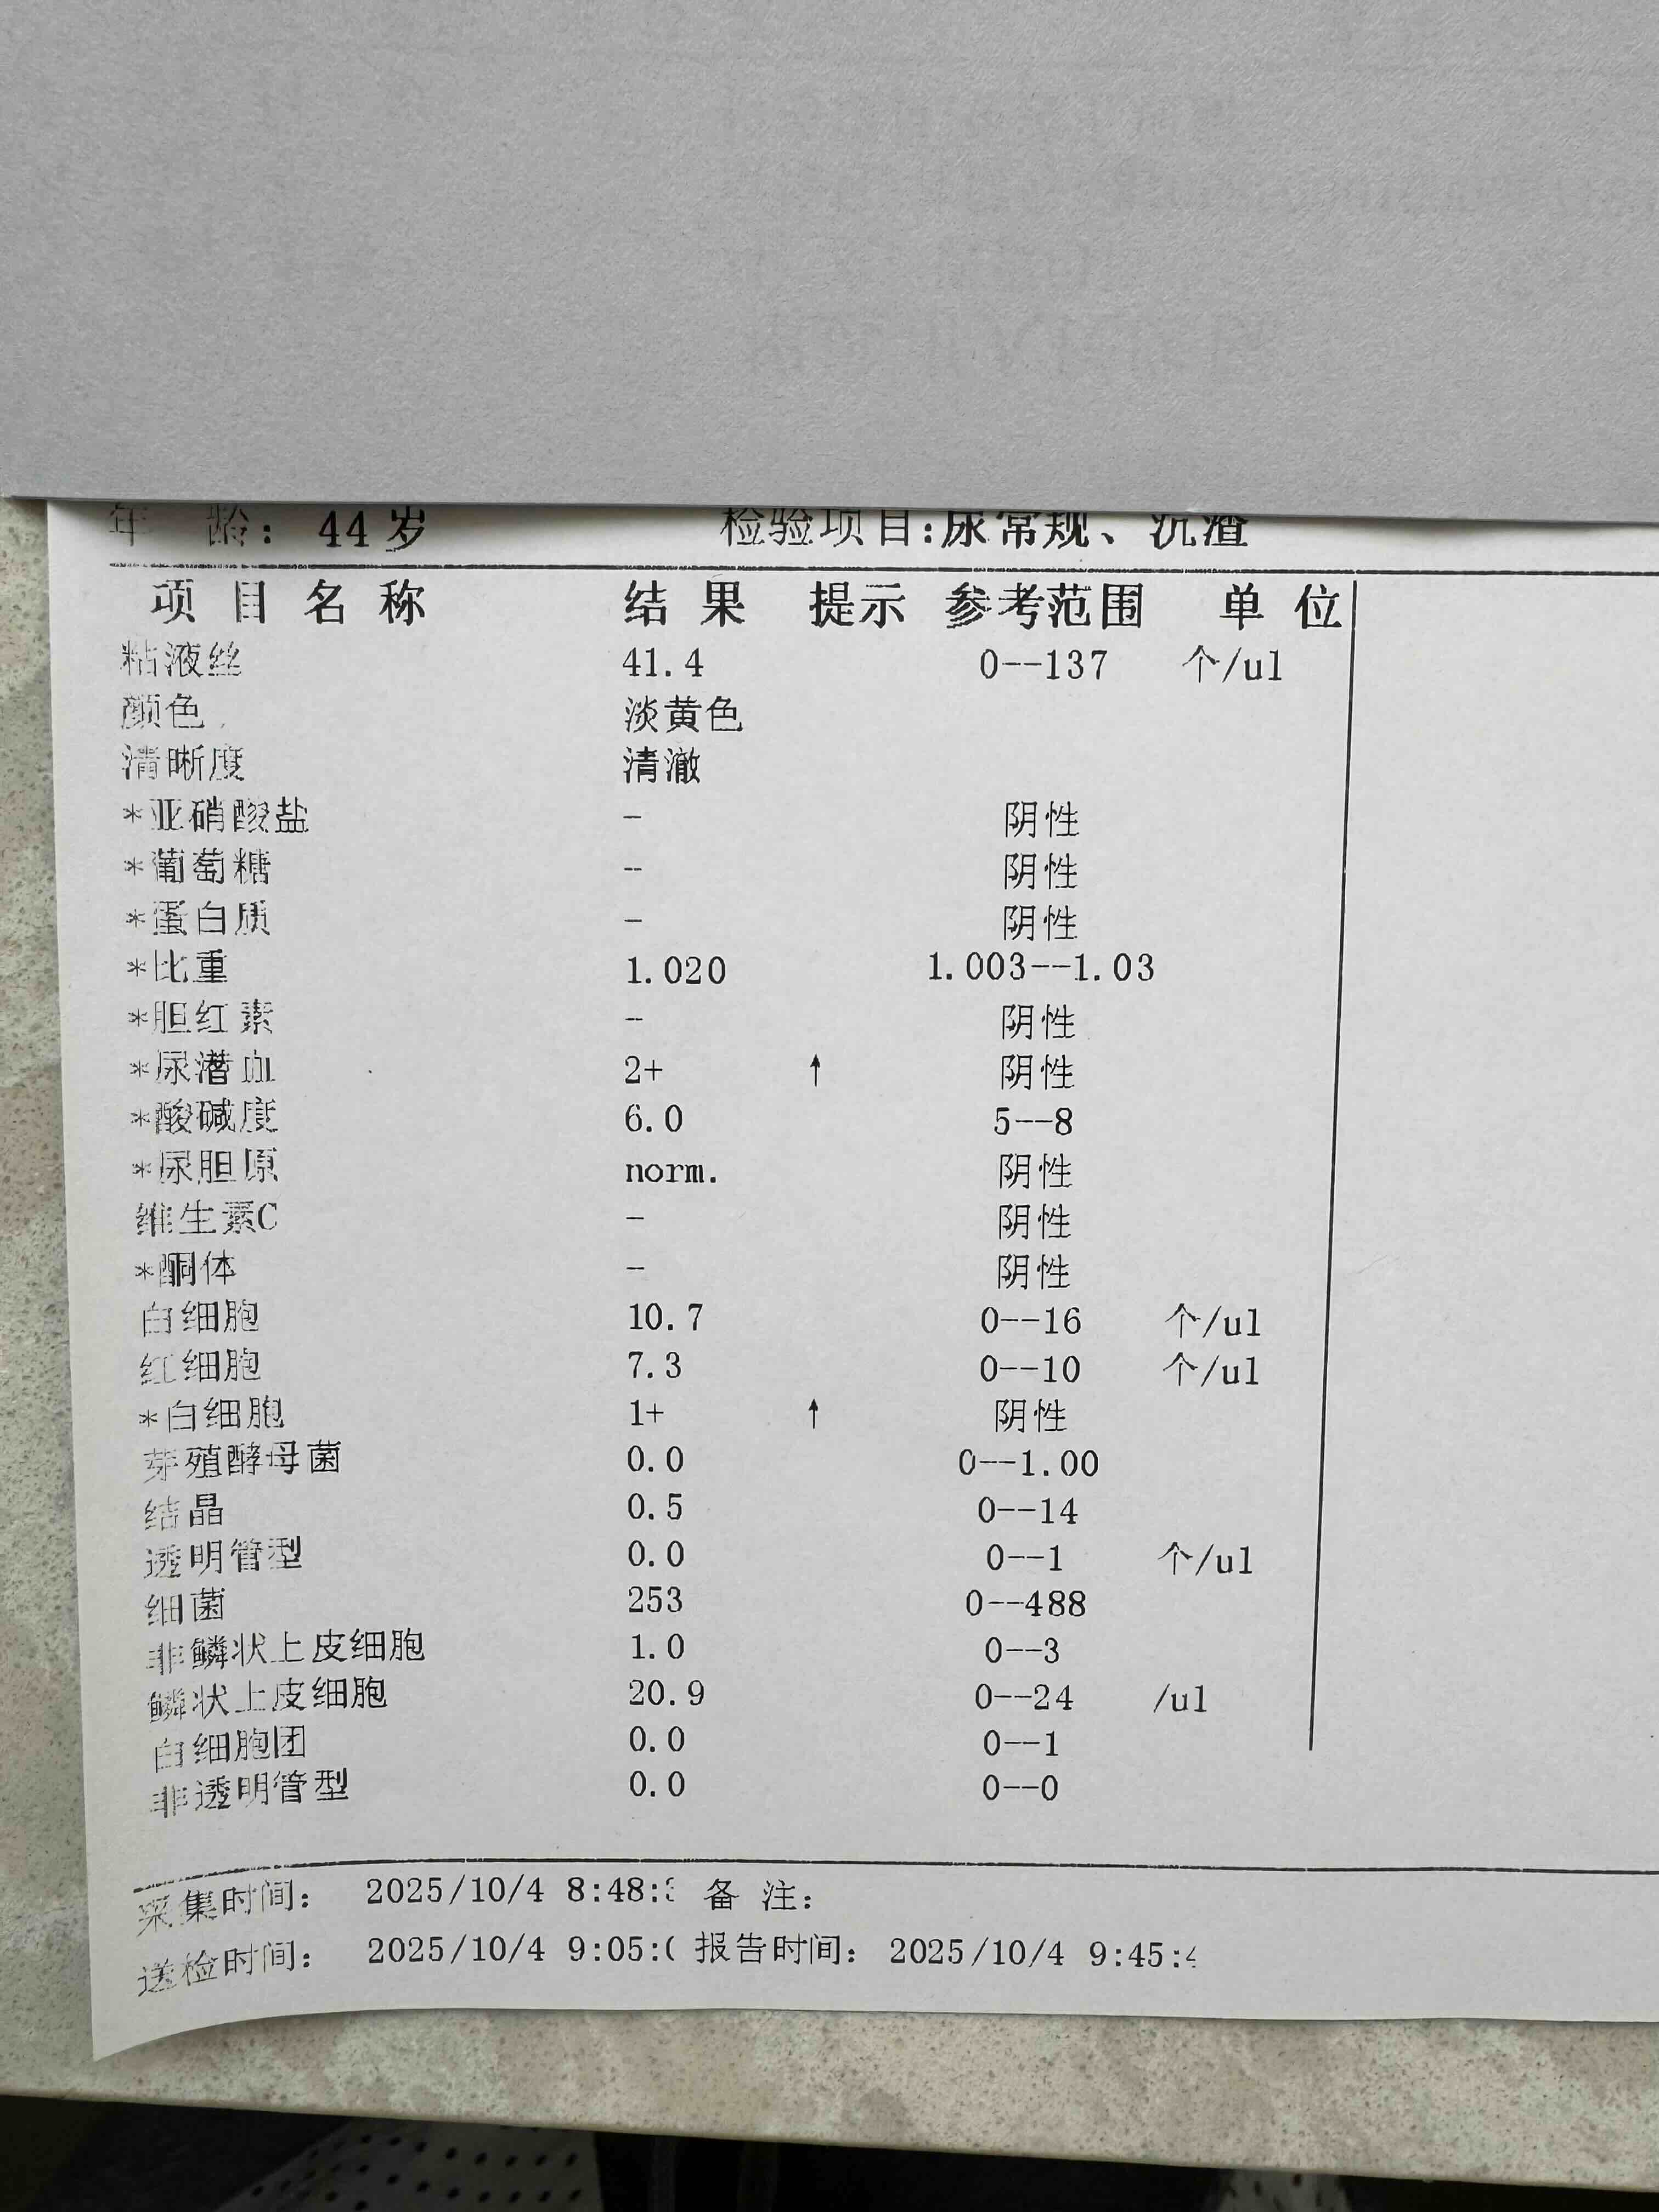 年 龄: 44岁 检验项目:尿常规、沉渣
项 目 名 称 结 果 提示 参考范围 单 位
粘液丝 41.4 0--137 个/ul
颜色 淡黄色
清晰度 清澈
*亚硝酸盐 - 阴性
*葡萄糖 - 阴性
*蛋白质 - 阴性
*比重 1.020 1.003--1.03
*胆红素 - 阴性
*尿潜血 2+ ↑ 阴性
*酸碱度 6.0 5--8
*尿胆原 norm. 阴性
维生素C - 阴性
*酮体 - 阴性
白细胞 10.7 0--16 个/ul
红细胞 7.3 0--10 个/ul
*白细胞 1+ ↑ 阴性
芽殖酵母菌 0.0 0--1.00
结晶 0.5 0--14
透明管型 0.0 0--1 个/ul
细菌 253 0--488
非鳞状上皮细胞 1.0 0--3
鳞状上皮细胞 20.9 0--24 /ul
白细胞团 0.0 0--1
非透明管型 0.0 0--0
采集时间: 2025/10/4 8:48: 备 注:
送检时间: 2025/10/4 9:05: 报告时间: 2025/10/4 9:45: